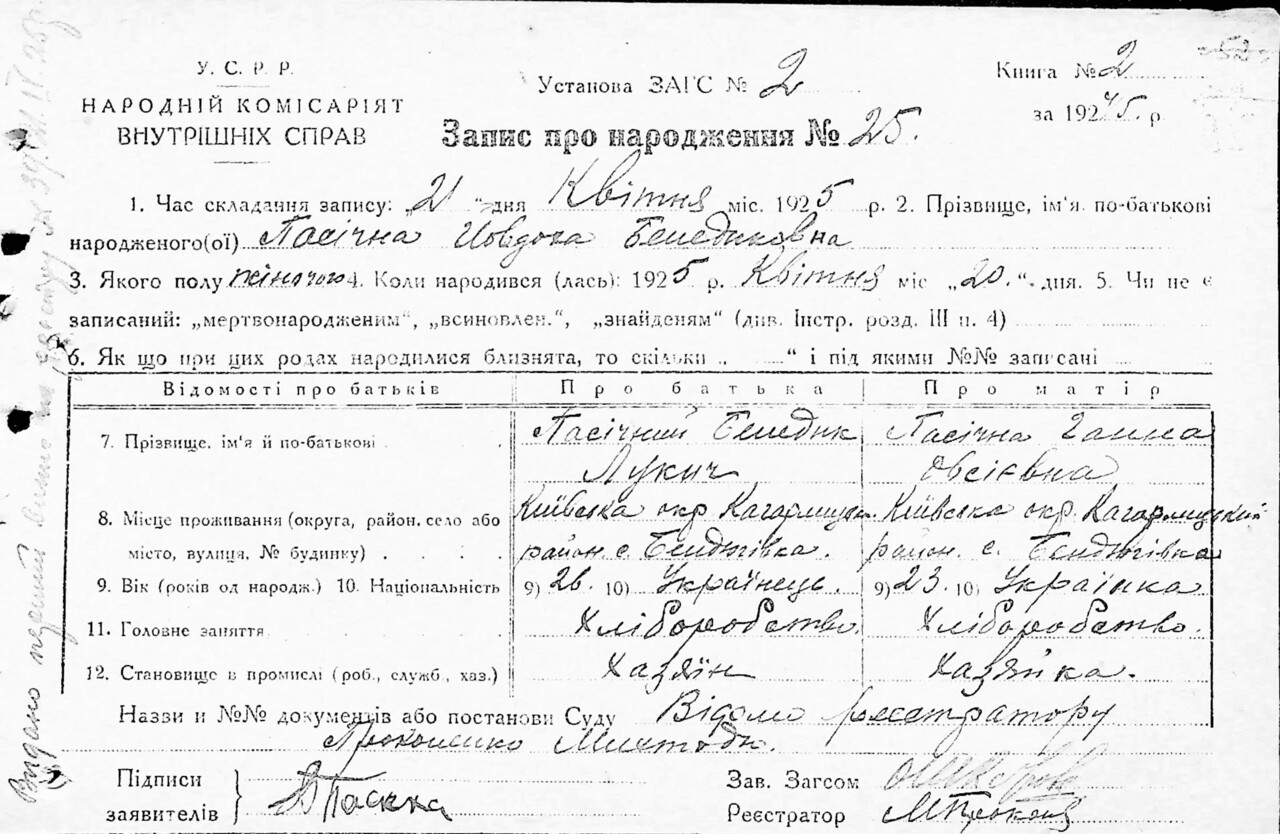 У. С. Р. Р.
НАРОДНІЙ КОМІСАРІЯТ
ВНУТРІШНІХ СПРАВ
Установа ЗАГС № 2
Книга № 2
за 1925 р.
52
Запис про народження № 25.
1. Час складання запису: „21“ дня Квітня міс. 1925 р. 2. Прізвище, ім'я по-батькові
народженого(ої) Пасічна Йовдоха Бенедиковна
3. Якого полу жіночого 4. Коли народився (лась): 1925 р. Квітня міс „20.“ дня. 5. Чи не є
записаний: „мертвонародженим“, „всиновлен.“, „знайденям“ (див. Інстр. розд. III п. 4)
6. Як що при цих родах народилися близнята, то скільки „ “ і під якими №№ записані
Відомості про батьків Про батька Про матір
7. Прізвище, ім'я й по-батькові Пасічний Бенедик Пасічна Ганна
Лукич Овсієвна
8. Місце проживання (округа, район, село або Київська окр Кагарлицьк Київська окр. Кагарлицький
місто, вулиця, № будинку) район. с. Бендюгівка. район. с. Бендюгівка
9. Вік (років од народж.) 10. Національність 9) 26. 10) Українець. 9) 23. 10) Українка
11. Головне заняття Хліборобство. Хліборобство.
12. Становище в промислі (роб., служб., хаз.) Хазяїн Хазяйка.
Назви и №№ документів або постанови Суду Відомо реєстратору
Прокопенко Мистодю.
Підписи
заявителів
Зав. Загсом
Реєстратор
Видано перший витяг